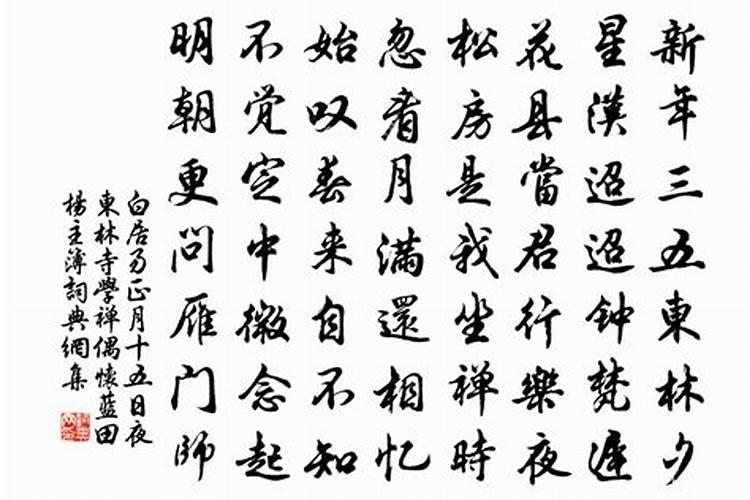 新年三五東林夕
星漢迢迢钟梵遲
花县當君行樂夜
松房是我坐禅時
忽看月满還相忆
始叹春来自不知
不觉定中微念起
明朝更问雁门师
白居易正月十五日夜
東林寺學禅偶懷藍田
楊主簿詞典網集